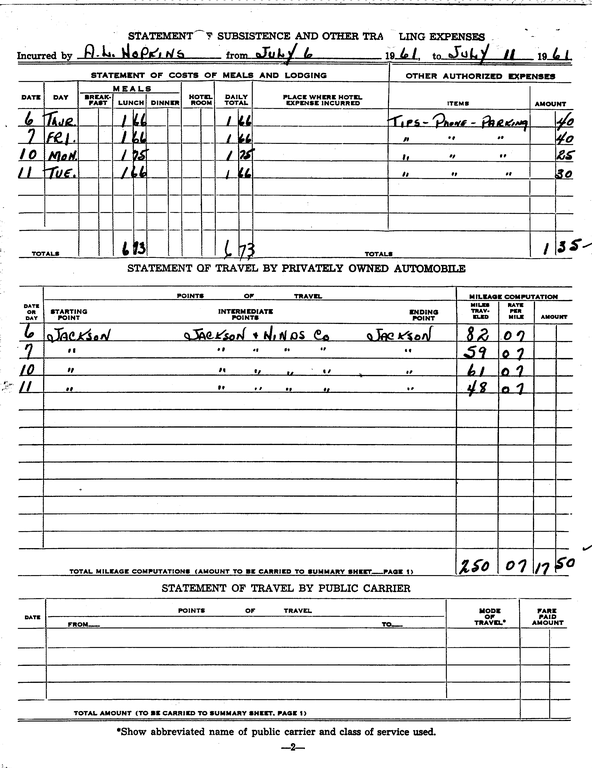 STATEMENT SUBSISTENCE AND OTHER TRA LING EXPENSES
Incurred by A.L. HOPKINS from JULY 6 1961, to JULY 11 1961
STATEMENT OF COSTS OF MEALS AND LODGING OTHER AUTHORIZED EXPENSES
MEALS
DATE DAY BREAK-FAST LUNCH DINNER HOTEL ROOM DAILY TOTAL PLACE WHERE HOTEL EXPENSE INCURRED ITEMS AMOUNT
6 THUR. 1 66 1 66 TIPS - PHONE - PARKING 40
7 FRI. 1 66 1 66 " " " 40
10 MON. 1 75 1 75 " " " 25
11 TUE. 1 66 1 66 " " " 30
TOTALS 6 73 6 73 TOTALS 1 35
STATEMENT OF TRAVEL BY PRIVATELY OWNED AUTOMOBILE
POINTS OF TRAVEL MILEAGE COMPUTATION
DATE OR DAY STARTING POINT INTERMEDIATE POINTS ENDING POINT MILES TRAV-ELED RATE PER MILE AMOUNT
6 JACKSON JACKSON & HINDS CO JACKSON 82 07
7 " " " " " " 59 07
10 " " " " " " 61 07
11 " " " " " " 48 07
TOTAL MILEAGE COMPUTATIONS (AMOUNT TO BE CARRIED TO SUMMARY SHEET__PAGE 1) 250 07 17 50
STATEMENT OF TRAVEL BY PUBLIC CARRIER
DATE POINTS OF TRAVEL MODE OF TRAVEL* FARE PAID AMOUNT
FROM__ TO__
TOTAL AMOUNT (TO BE CARRIED TO SUMMARY SHEET, PAGE 1)
*Show abbreviated name of public carrier and class of service used.
—2—